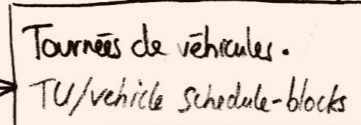 Tournées de véhicules.
TU/vehicle schedule-blocks